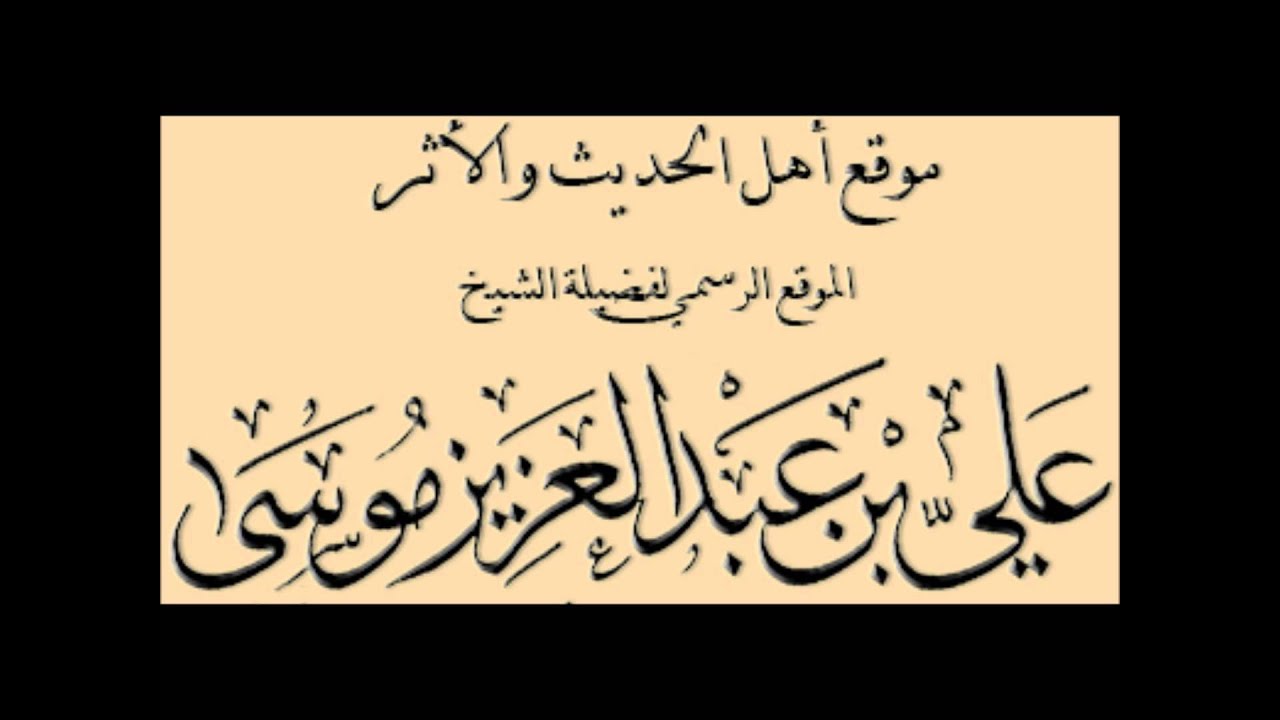 موقع أهل الحديث والأثر
الموقع الرسمي لفضيلة الشيخ
علي بن عبد العزيز موسى